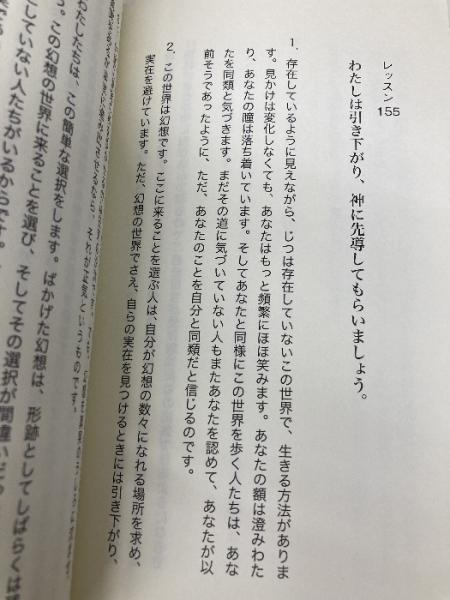 レッスン
155
わたしは引き下がり、神に先導してもらいましょう。
1. 存在しているように見えながら、じつは存在していないこの世界で、生きる方法がありま
す。見かけは変化しなくても、あなたはもっと頻繁にほほ笑みます。あなたの額は澄みわた
り、あなたの瞳は落ち着いています。そしてあなたと同様にこの世界を歩く人たちは、あな
たを同類と気づきます。まだその道に気づいていない人もまたあなたを認めて、あなたが以
前そうであったように、ただ、あなたのことを自分と同類だと信じるのです。
2. この世界は幻想です。ここに来ることを選ぶ人は、自分が幻想の数々になれる場所を求め、
実在を避けています。ただ、幻想の世界でさえ、自らの実在を見つけるときには引き下がり、
それが正気というものです。
わたしたちは、この簡単な選択をします。ばかげた幻想は、形跡としてしばらくは
この幻想の世界に来ることを選び、そしてその選択が間違いだ
していない人たちがいるからです。